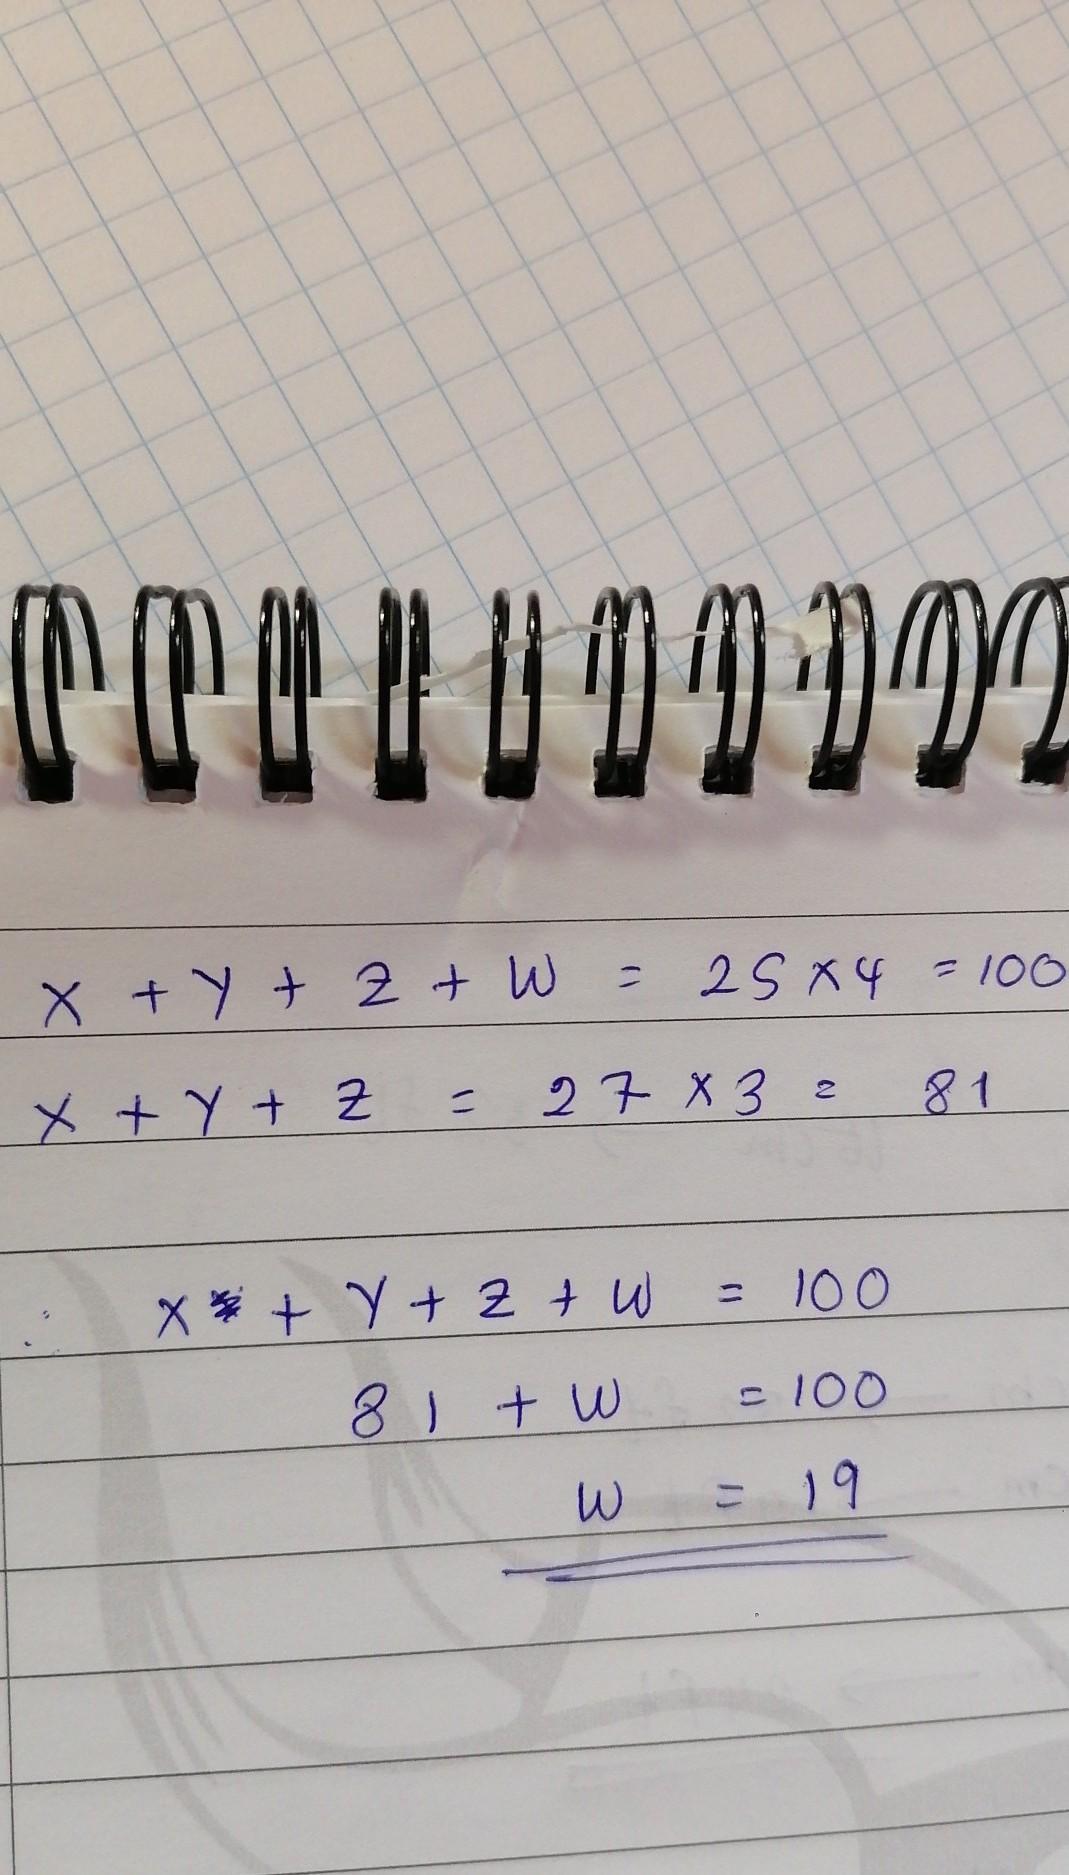 X + Y + Z + W = 25 × 4 = 100
X + Y + Z = 27 × 3 = 81
∴ X + Y + Z + W = 100
81 + W = 100
W = 19